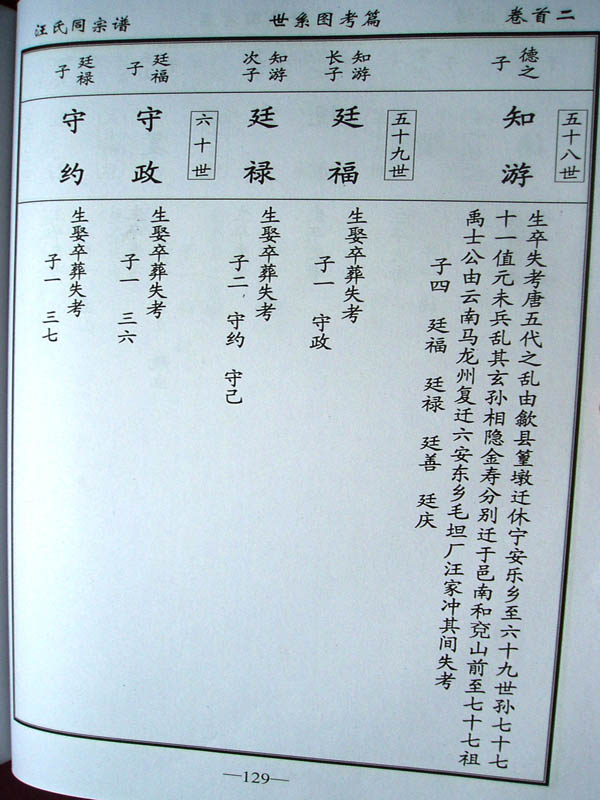 汪氏同宗谱
世系图考篇
卷首二
五十八世
德之子
知游
生卒失考唐五代之乱由歙县篁墩迁休宁安乐乡至六十九世孙七十七
十一值元末兵乱其玄孙相隐金寿分别迁于邑南和兖山前至七十七祖
禹士公由云南马龙州复迁六安东乡毛坦厂汪家冲其间失考
子四 廷福 廷禄 廷善 廷庆
五十九世
知游长子
廷福
生娶卒葬失考
子一 守政
知游次子
廷禄
生娶卒葬失考
子二 守约 守己
六十世
廷福子
守政
生娶卒葬失考
子一 三六
廷禄子
守约
生娶卒葬失考
子一 三七
—129—